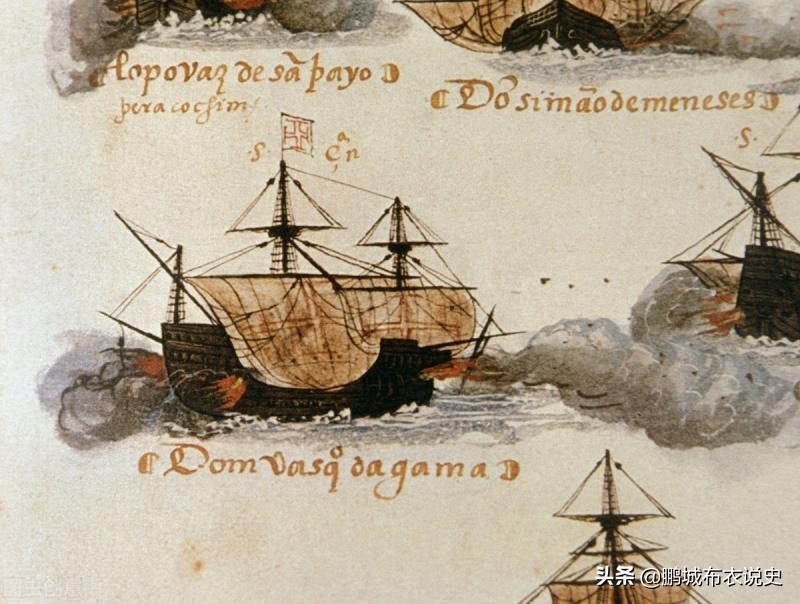 lopovaz de sã payo
pera cochim
Dõ simão de meneses
S.
S. cãn
Dom vasqo da gama
头条 @鹏城布衣说史